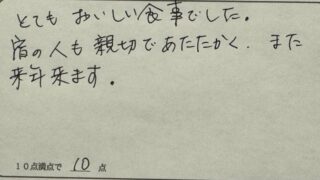 とても おいしい食事でした。
宿の人も親切であたたかく、また
来年来ます。
10点満点で 10 点